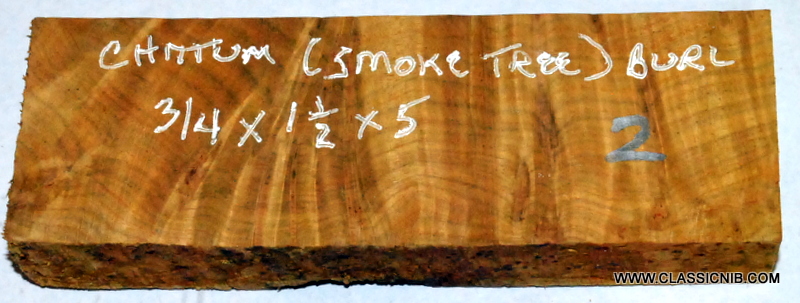 CHITTUM (SMOKE TREE) BURL
3/4 X 1 1/2 X 5
2
WWW.CLASSICNIB.COM